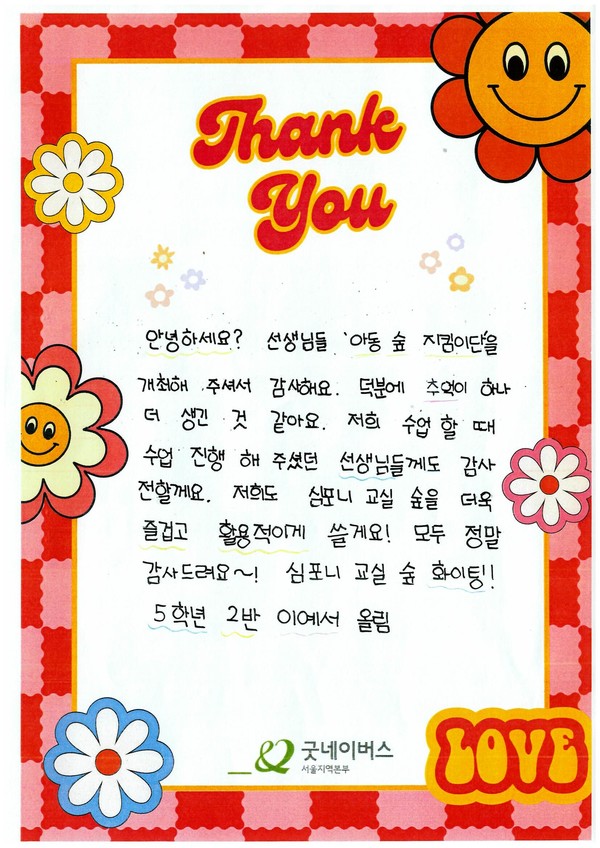 Thank
You
안녕하세요? 선생님들 '아동 숲 지킴이단'을
개최해 주셔서 감사해요. 덕분에 추억이 하나
더 생긴 것 같아요. 저희 수업 할 때
수업 진행 해 주셨던 선생님들께도 감사
전할께요. 저희도 심포니 교실 숲을 더욱
즐겁고 활용적이게 쓸게요! 모두 정말
감사드려요~! 심포니 교실 숲 화이팅!!
5학년 2반 이예서 올림
굿네이버스
서울지역본부
LOVE